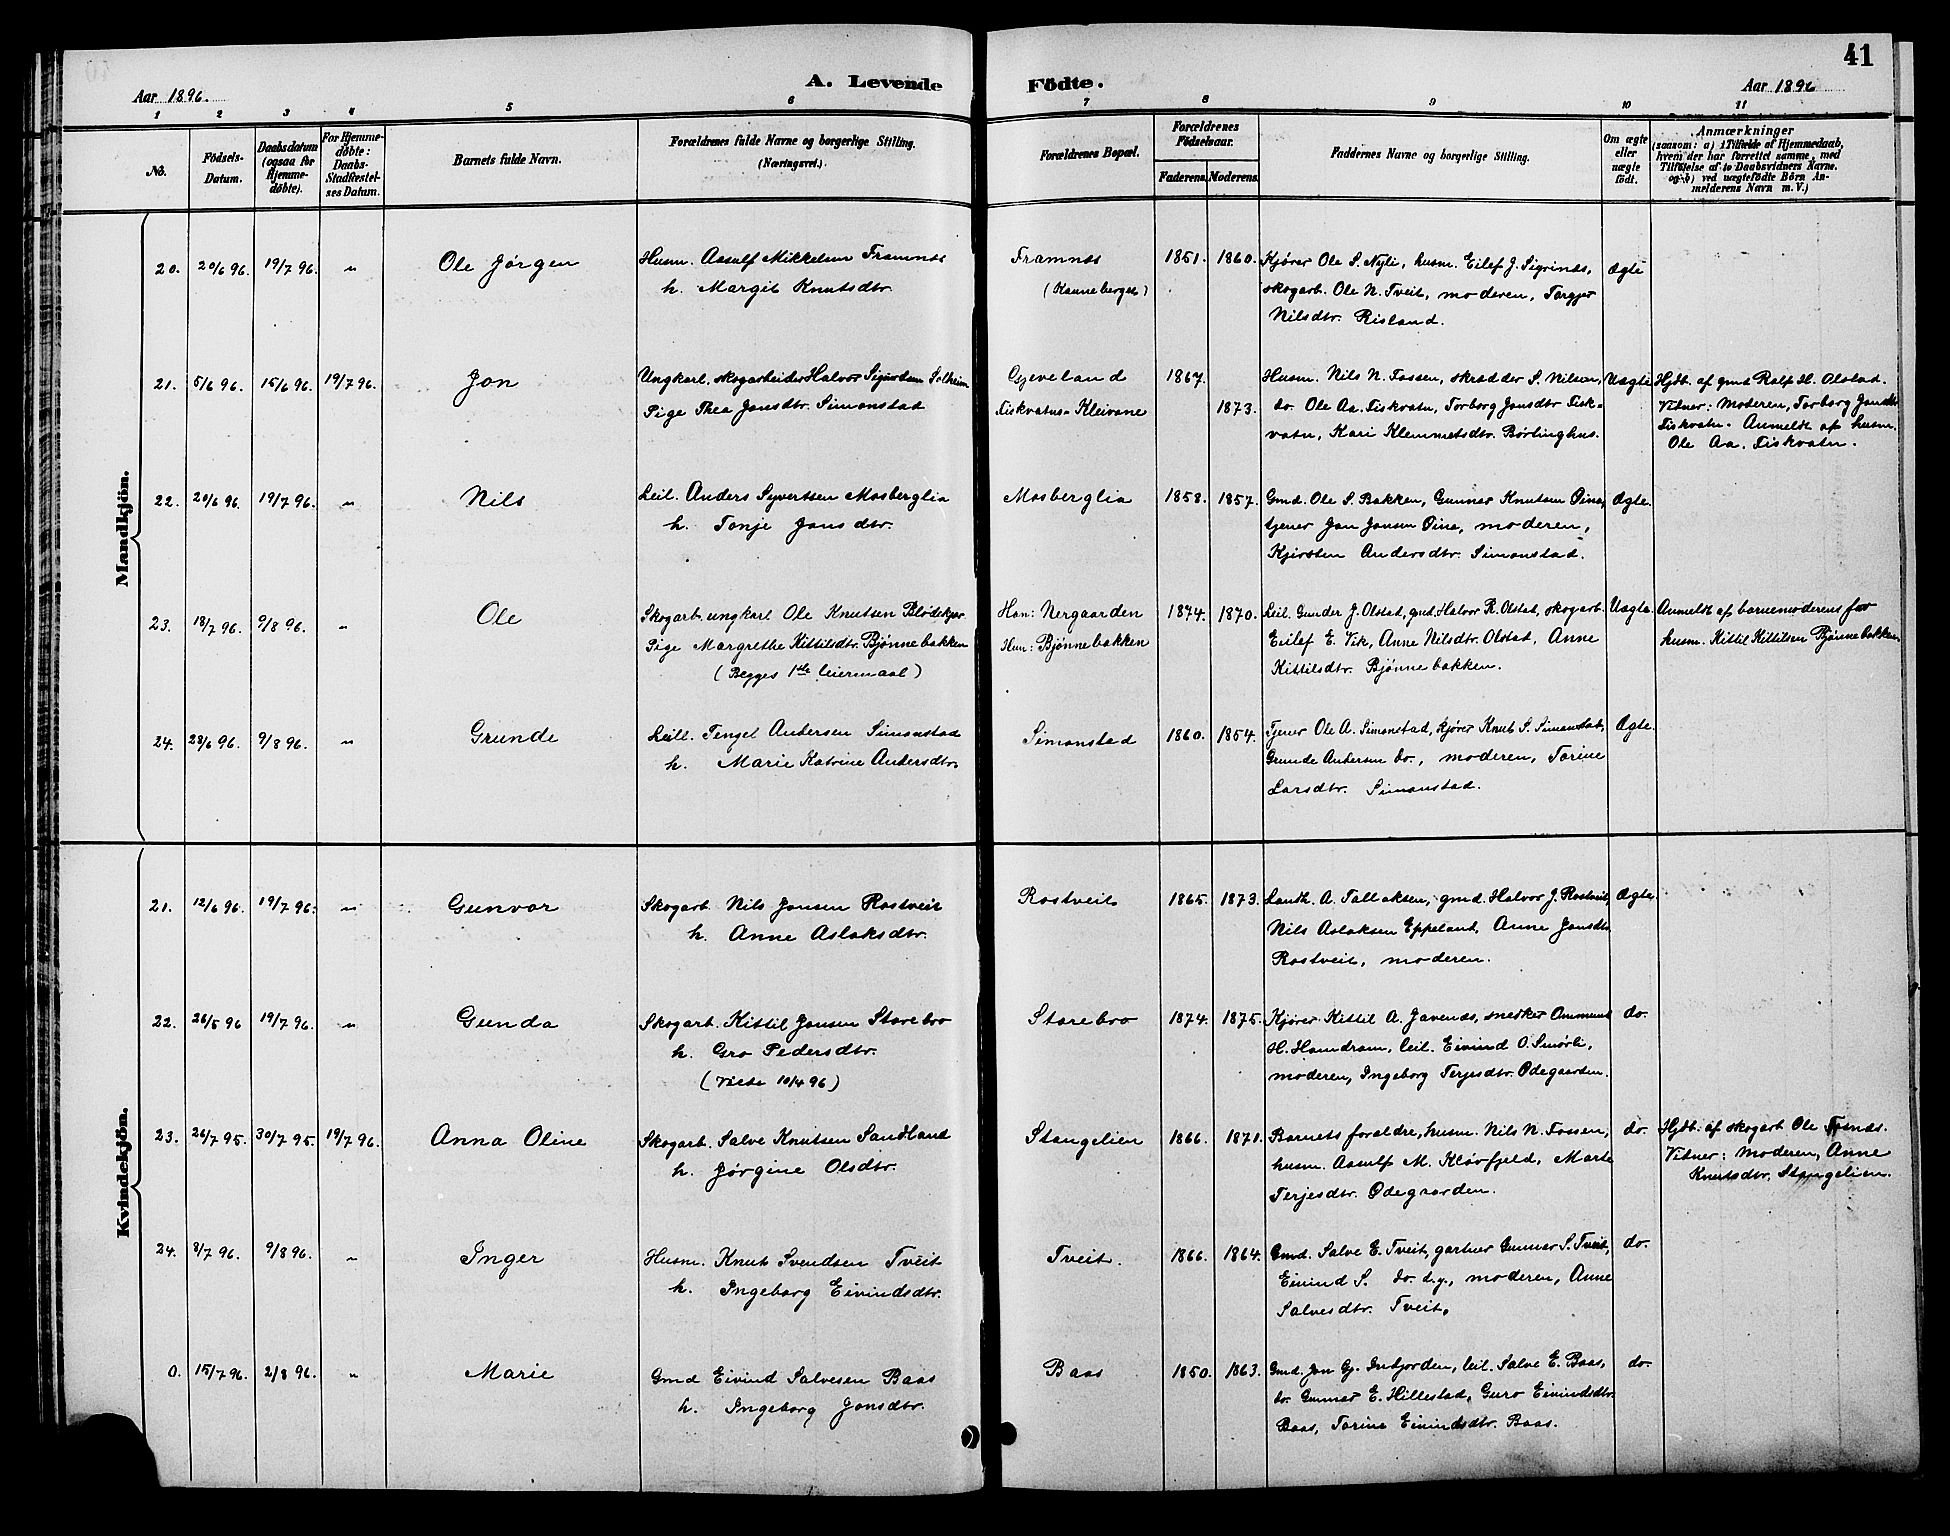 41
Aar 1896.
A. Levende Födte.
Aar 1896
1 2 3 4 5 6 7 8 9 10 11
No.
Födsels-Datum.
Daabsdatum (ogsaa for Hjemmedøbte).
For Hjemmedøbte: Daabs-Stadfæstelses Datum.
Barnets fulde Navn.
Forældrenes fulde Navne og borgerlige Stilling. (Næringsvei.)
Forældrenes Bopæl.
Forældrenes Födselsaar.
Faderens. Moderens.
Faddernes Navne og borgerlige Stilling.
Om ægte eller uægte født.
Anmærkninger
(saasom: a) i Tilfælde af Hjemmedaab, hvem der har forrettet samme, med Tilføielse af to Daabsvidners Navne, og b) ved uægtefödte Börn Anmelderens Navn m. V.)
Mandkjön.
20. 20/6 96. 19/7 96. " Ole Jørgen
Husm. Aasulf Mikkelsen Framnæs
h. Margit Knutsdtr.
Framnæs
(Kanneberget)
1851. 1860.
Kjører Ole S. Nyli, husm. Eilef J. Sigrinæs,
skogarb. Ole N. Tveit, moderen, Torgjer
Nilsdtr. Risland.
Ægte
21. 5/6 96. 15/6 96. 19/7 96. Jon
Ungkarl, skogarbeider Halvor Sigurdsen Solheim
Pige Thea Jonsdtr. Simonstad
Gjeveland
Fiskvatns-Kleivane
1867. 1873.
Husm. Nils N. Fossen, skrædder S. Nilsen,
do. Ole Aa. Fiskvatn, Torborg Jonsdtr Fisk-
vatn, Kari Klemmetsdtr. Børlinghus.
Uægte
Hjdb. af gmd Rolf H. Olstad.
Vidner: Moderen, Torborg Jonsdtr
Fiskvatn. Anmeldt af husm.
Ole Aa. Fiskvatn.
22. 20/6 96. 19/7 96. " Nils
Leil. Anders Syvertsen Mosberglia
h. Tonje Jonsdtr.
Mosberglia
1858. 1857.
Gmd. Ole S. Bakken, Gunnar Knutsen Øina,
tjener Jon Jonsen Øina, moderen,
Kjirsten Andersdtr. Simonstad.
Ægte.
23. 18/7 96. 9/8 96. " Ole
Skogarb. ungkarl Ole Knutsen Blødekjær
Pige Margrethe Kittilsdtr. Bjønnebakken
(Begges 1ste leiermaal)
Han: Nergaarden
Hun: Bjønnebakken
1874. 1870.
Leil. Gunder J. Olstad, gmd. Halvor R. Olstad, skogarb.
Eilef E. Vik, Anne Nilsdtr. Olstad, Anne
Kittilsdtr. Bjønnebakken.
Uægte
Anmeldt af barnemoderens far
husm. Kittil Kittilsen Bjønnebakken.
24. 28/6 96. 9/8 96. " Grunde
Leill. Tengel Andersen Simonstad
h. Marie Katrine Andersdtr.
Simonstad
1860. 1854.
Tjener Ole A. Simonstad, Kjører Knut S. Simonstad,
Grunde Andersen do., moderen, Torine
Larsdtr. Simonstad.
Ægte.
Kvindekjön.
21. 12/6 96. 19/7 96. " Gunvor
Skogarb. Nils Jonsen Rostveit
h. Anne Aslaksdtr.
Rostveit
1865. 1873.
Landh. A. Tallaksen, gmd. Halvor J. Rostveit,
Nils Aslaksen Eppeland, Anne Jonsdtr.
Rostveit, moderen.
Ægte.
22. 26/5 96 19/7 96. " Gunda
Skogarb. Kittil Jonsen Storebro
h. Gro Pedersdtr.
(Viede 10/4 96)
Storebro
1874. 1875.
Kjører Kittil A. Javends, snedker Ommund
H. Hamdram, leil. Eivind O. Smørli,
moderen, Ingeborg Terjesdtr. Ødegaarden.
do.
23. 26/7 95. 30/7 95. 19/7 96. Anna Oline
Skogarb. Salve Knutsen Sandland
h. Jørgine Olsdtr.
Stangelien
1866. 1871.
Barnets forældre, husm. Nils N. Fossen,
husm. Aasulf M. Kløvfjeld, Marte
Terjesdtr. Ødegaarden.
do.
Hjdb. af skogarb Ole
Vidner: Moderen, Anne
Knutsdtr. Stangelien.
24. 8/7 96. 9/8 96. " Inger
Husm. Knut Svendsen Tveit
h. Ingeborg Eivindsdtr.
Tveit.
1866. 1864.
Gmd. Salve E. Tveit, gartner Gunnar S. Tveit,
Eivind S. do. d.y., moderen, Anne
Salvesdtr. Tveit.
do.
0. 15/7 96. 2/8 96. " Marie
Gmd Eivind Salvesen Baas
h. Ingeborg Jonsdtr.
Baas
1850. 1863.
Gmd. Jon Gj. Indfjorden, leil. Salve E. Baas,
do. Gunnar E. Hillestad, Guro Eivindsdtr.
Baas, Torine Eivindsdtr. Baas.
do.